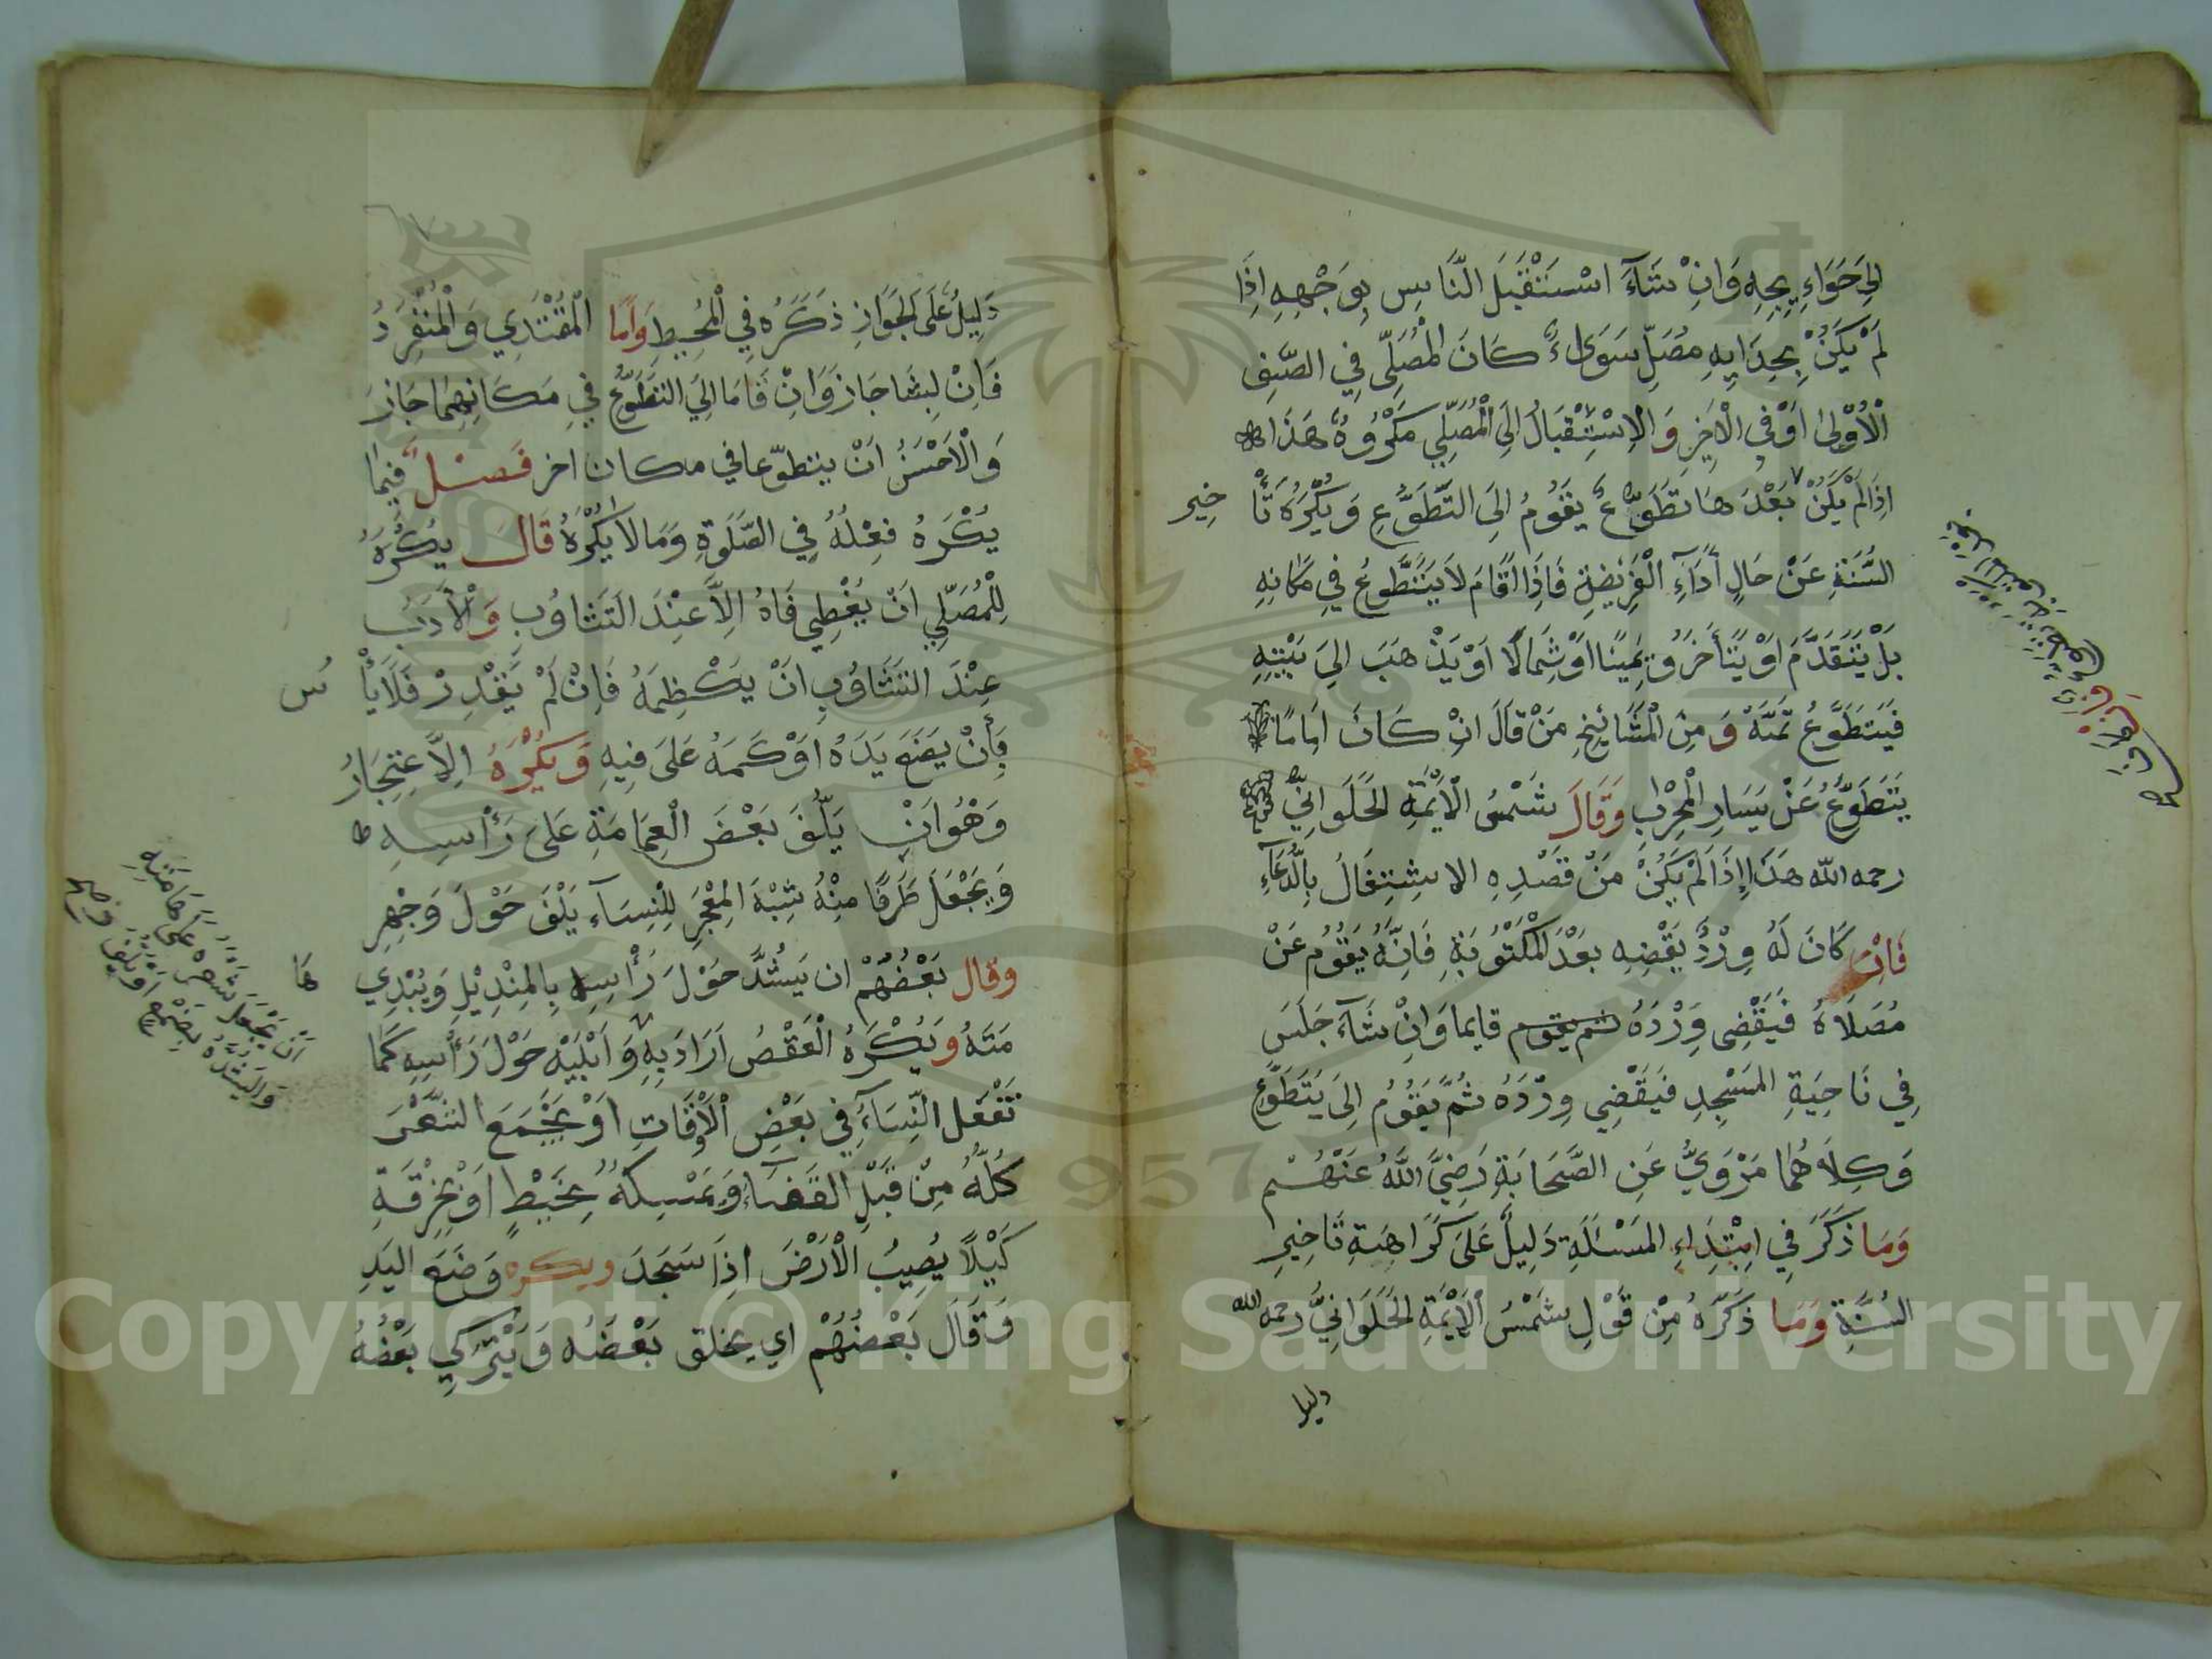 الِىَ حَوَاءِيجِهِ وَاِنْ شَآءَ اسْتَقْبَلَ النَّاسِ بِوَجْهِهِ اِذَا
لَمْ يَكُنْ بِحِذَايِهِ مُصَلٍّ سَوَاءٌ كَانَ الْمُصَلِّى فِي الصَّفِ
الْاُوْلىٰ اَوْ فِي الْاَخِرِ وَالْاِسْتِقْبَالُ اِلَى الْمُصَلِّي مَكْرُوهٌ هَذَا
اِذَا لَمْ يَكُنْ بَعْدَهَا تَطَوُّعٌ يَقُومُ اِلَى التَّطَوُّعِ وَيُكْرَهُ تَأْ
خِير
السُّنَّةِ عَنْ حَالِ اَدَآءِ الْفَرِيْضَةِ فَاِذَا قَامَ لَا يَتَطَوَّعُ فِي مَكَانِهِ
بَلْ يَتَقَدَّمُ اَوْ يَتَأَخَرُ وَيَمِيْنًا اَوْ شِمَالًا اَوْ يَذْهَبَ اِلَى بَيْتِهِ
فَيَتَطَوَّعُ ثَمَّهْ وَمِنَ الْمَشَايِخِ مَنْ قَالَ اِنْ كَانَ اِمَامًا
يَتَطَوَّعُ عَنْ يَسَارِ الْمِحْرَابِ وَقَالَ شَمْسُ الْاَيِمَّةِ الحَلَوَانِيُّ
رحمه الله هَذَا اِذَا لَمْ يَكُنْ مَنْ قَصْدِهِ الاشِتِغَالُ بِالدُّعَآءِ
فَاِنْ كَانَ لَهُ وِرْدٌ يَقْضِهِ بَعْدَ الْمَكْتُوْبَةِ فَاِنَّهُ يَقُوْمُ عَنْ
مُصَلَّاهُ فَيَقْضِى وِرْدَهُ ثم يقوم قايما وَاِنْ شَآءَ جَلَسَ
فِي نَاحِيَةِ المَسْجِدِ فَيَقْضِي وِرْدَهُ ثُمَّ يَقُوْمُ اِلَى يَتَطَوَّعِ
وَكِلَاهُمَا مَرْوِيٌّ عَنِ الصَّحَابَةِ رَضِيَ اللّٰهُ عَنْهُمْ
وَمَا ذَكَرَ فِي اِبْتِدَاءِ المَسْئَلَةِ دَلِيلٌ عَلَى كَرَاهَةِ تَاخِيرِ
السُنَّةِ وَمَا ذَكَرَهُ مِنْ قَوْلِ شَمْسُ الْاَيِمَّةِ الحَلَوَانِيُّ رحمه الله
دليل
دَلِيلٌ عَلَى الجَوَازِ ذَكَرَهُ فِي الْمُحِيطِ وَاَمَّا الْمُقْتَدِي وَالْمُنْفَرِدُ
فَاِنْ لَبِثَا جَازَ وَاِنْ قَامَا اِلَى التَطَوُّعِ فِي مَكَانِهِمَا جَازَ
وَالْاَحْسَنُ اَنْ يتطوّعا في مكان اخر فَصْلٌ فِيمَا
يُكْرَهُ فِعْلُهُ فِي الصَّلٰوةِ وَمَا لَا يُكْرَهُ قَالَ يُكْرَهُ
لِلْمُصَلِّي اَنْ يُغْطِي فَاهُ اِلَّا عِنْدَ التَثَاوُبِ وَالْاَدَبُ
عِنْدَ التَثَاوُبِ اَنْ يَكْظِمَهُ فَاِنْ لَمْ يَقْدِرْ فَلَا يَأْ
س
بِأَنْ يَضَعَ يَدَهُ اَوْ كَمَهُ عَلَى فِيهِ وَيُكْرَهُ الِاعْتِجَارُ
وَهُوَ اَنْ يَلُفَ بَعْضَ الْعِمَامَةِ عَلىَ رَأْسِهِ
وَيَجْعَلَ طَرَفًا مِنْهُ شِبْهَ الْمِعْجَرِ لِلْنِسَآءِ يَلُفَ حَوْلَ وَجْهِهِ
وقال بَعْضُهُمْ ان يَشُدَّ حَوْلَ رَأْسِهِ بِالْمِنْدِيْلِ وَيُبْدِي
هَا
مَتَهُ وَيُكْرَهُ الْعَقْصُ اَرَادَ بِهِ وَابْتَيْهِ حَوْلَ رَأْسِهِ كَمَا
تَفْعَلُ النِّسَآءُ فِي بَعْضِ الْاَوْقَاتِ اَوْ يَجْمَعَ الشَّعْرَ
كُلَّهُ مِنْ قَبْلِ القَفَاءِ وَيَمْسِكَهُ بِخَيْطٍ اَوْ بِخِرْقَةٍ
كَيْلَا يُصِيبُ الْاَرْضَ اِذَا سَجَدَ ويكره وَضَعَ اليَدِ
وَقَالَ بَعْضُهُمْ اي يحلق بَعْضَهُ وَيَتْرَكِي بَعْضُهُ
اَنْ يَجْعَلَ شَعْرَهُ عَلَى هَامَتِهِ
Copyright © King Saud University
1957